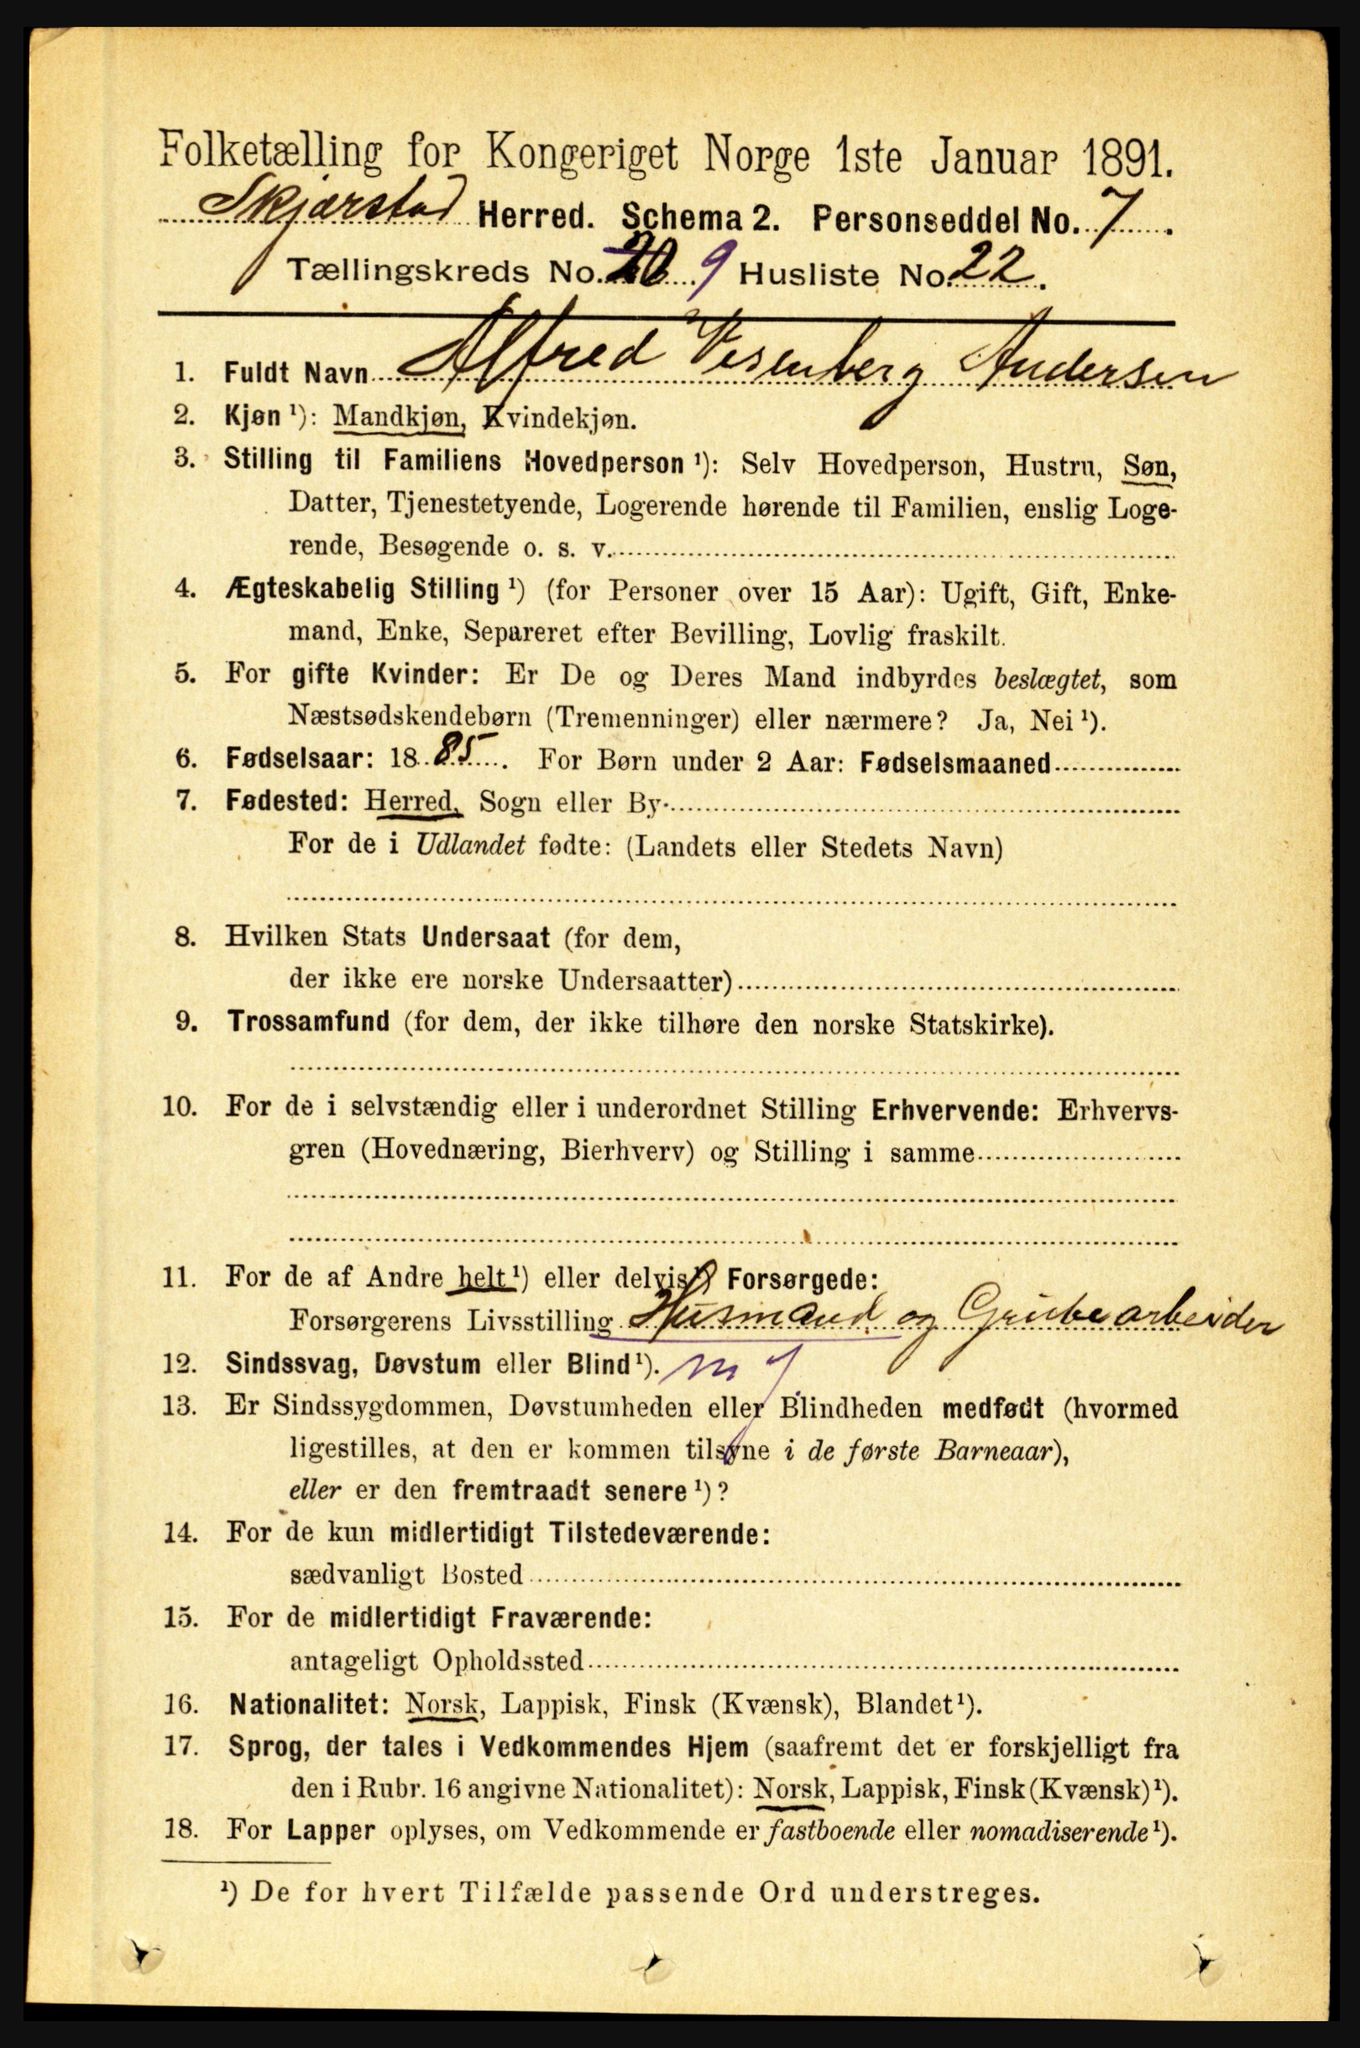 Folketælling for Kongeriget Norge 1ste Januar 1891.
Skjærstad Herred. Schema 2. Personseddel No. 7.
Tællingskreds No. 9 Husliste No. 22.
1. Fuldt Navn Alfred Vesenberg Andersen
2. Kjøn ¹): Mandkjøn, Kvindekjøn.
3. Stilling til Familiens Hovedperson ¹): Selv Hovedperson, Hustru, Søn,
Datter, Tjenestetyende, Logerende hørende til Familien, enslig Loge-
rende, Besøgende o. s. v.
4. Ægteskabelig Stilling ¹) (for Personer over 15 Aar): Ugift, Gift, Enke-
mand, Enke, Separeret efter Bevilling, Lovlig fraskilt.
5. For gifte Kvinder: Er De og Deres Mand indbyrdes beslægtet, som
Næstsødskendebørn (Tremenninger) eller nærmere? Ja, Nei ¹).
6. Fødselsaar: 1885. For Børn under 2 Aar: Fødselsmaaned
7. Fødested: Herred, Sogn eller By
For de i Udlandet fødte: (Landets eller Stedets Navn)
8. Hvilken Stats Undersaat (for dem,
der ikke ere norske Undersaatter)
9. Trossamfund (for dem, der ikke tilhøre den norske Statskirke).
10. For de i selvstændig eller i underordnet Stilling Erhvervende: Erhvervs-
gren (Hovednæring, Bierhverv) og Stilling i samme
11. For de af Andre helt ¹) eller delvis Forsørgede:
Forsørgerens Livsstilling Husmand og Grubearbeider
12. Sindssvag, Døvstum eller Blind ¹).
13. Er Sindssygdommen, Døvstumheden eller Blindheden medfødt (hvormed
ligestilles, at den er kommen tilsyne i de første Barneaar),
eller er den fremtraadt senere ¹)?
14. For de kun midlertidigt Tilstedeværende:
sædvanligt Bosted
15. For de midlertidigt Fraværende:
antageligt Opholdssted
16. Nationalitet: Norsk, Lappisk, Finsk (Kvænsk), Blandet ¹).
17. Sprog, der tales i Vedkommendes Hjem (saafremt det er forskjelligt fra
den i Rubr. 16 angivne Nationalitet): Norsk, Lappisk, Finsk (Kvænsk) ¹).
18. For Lapper oplyses, om Vedkommende er fastboende eller nomadiserende ¹).
¹) De for hvert Tilfælde passende Ord understreges.